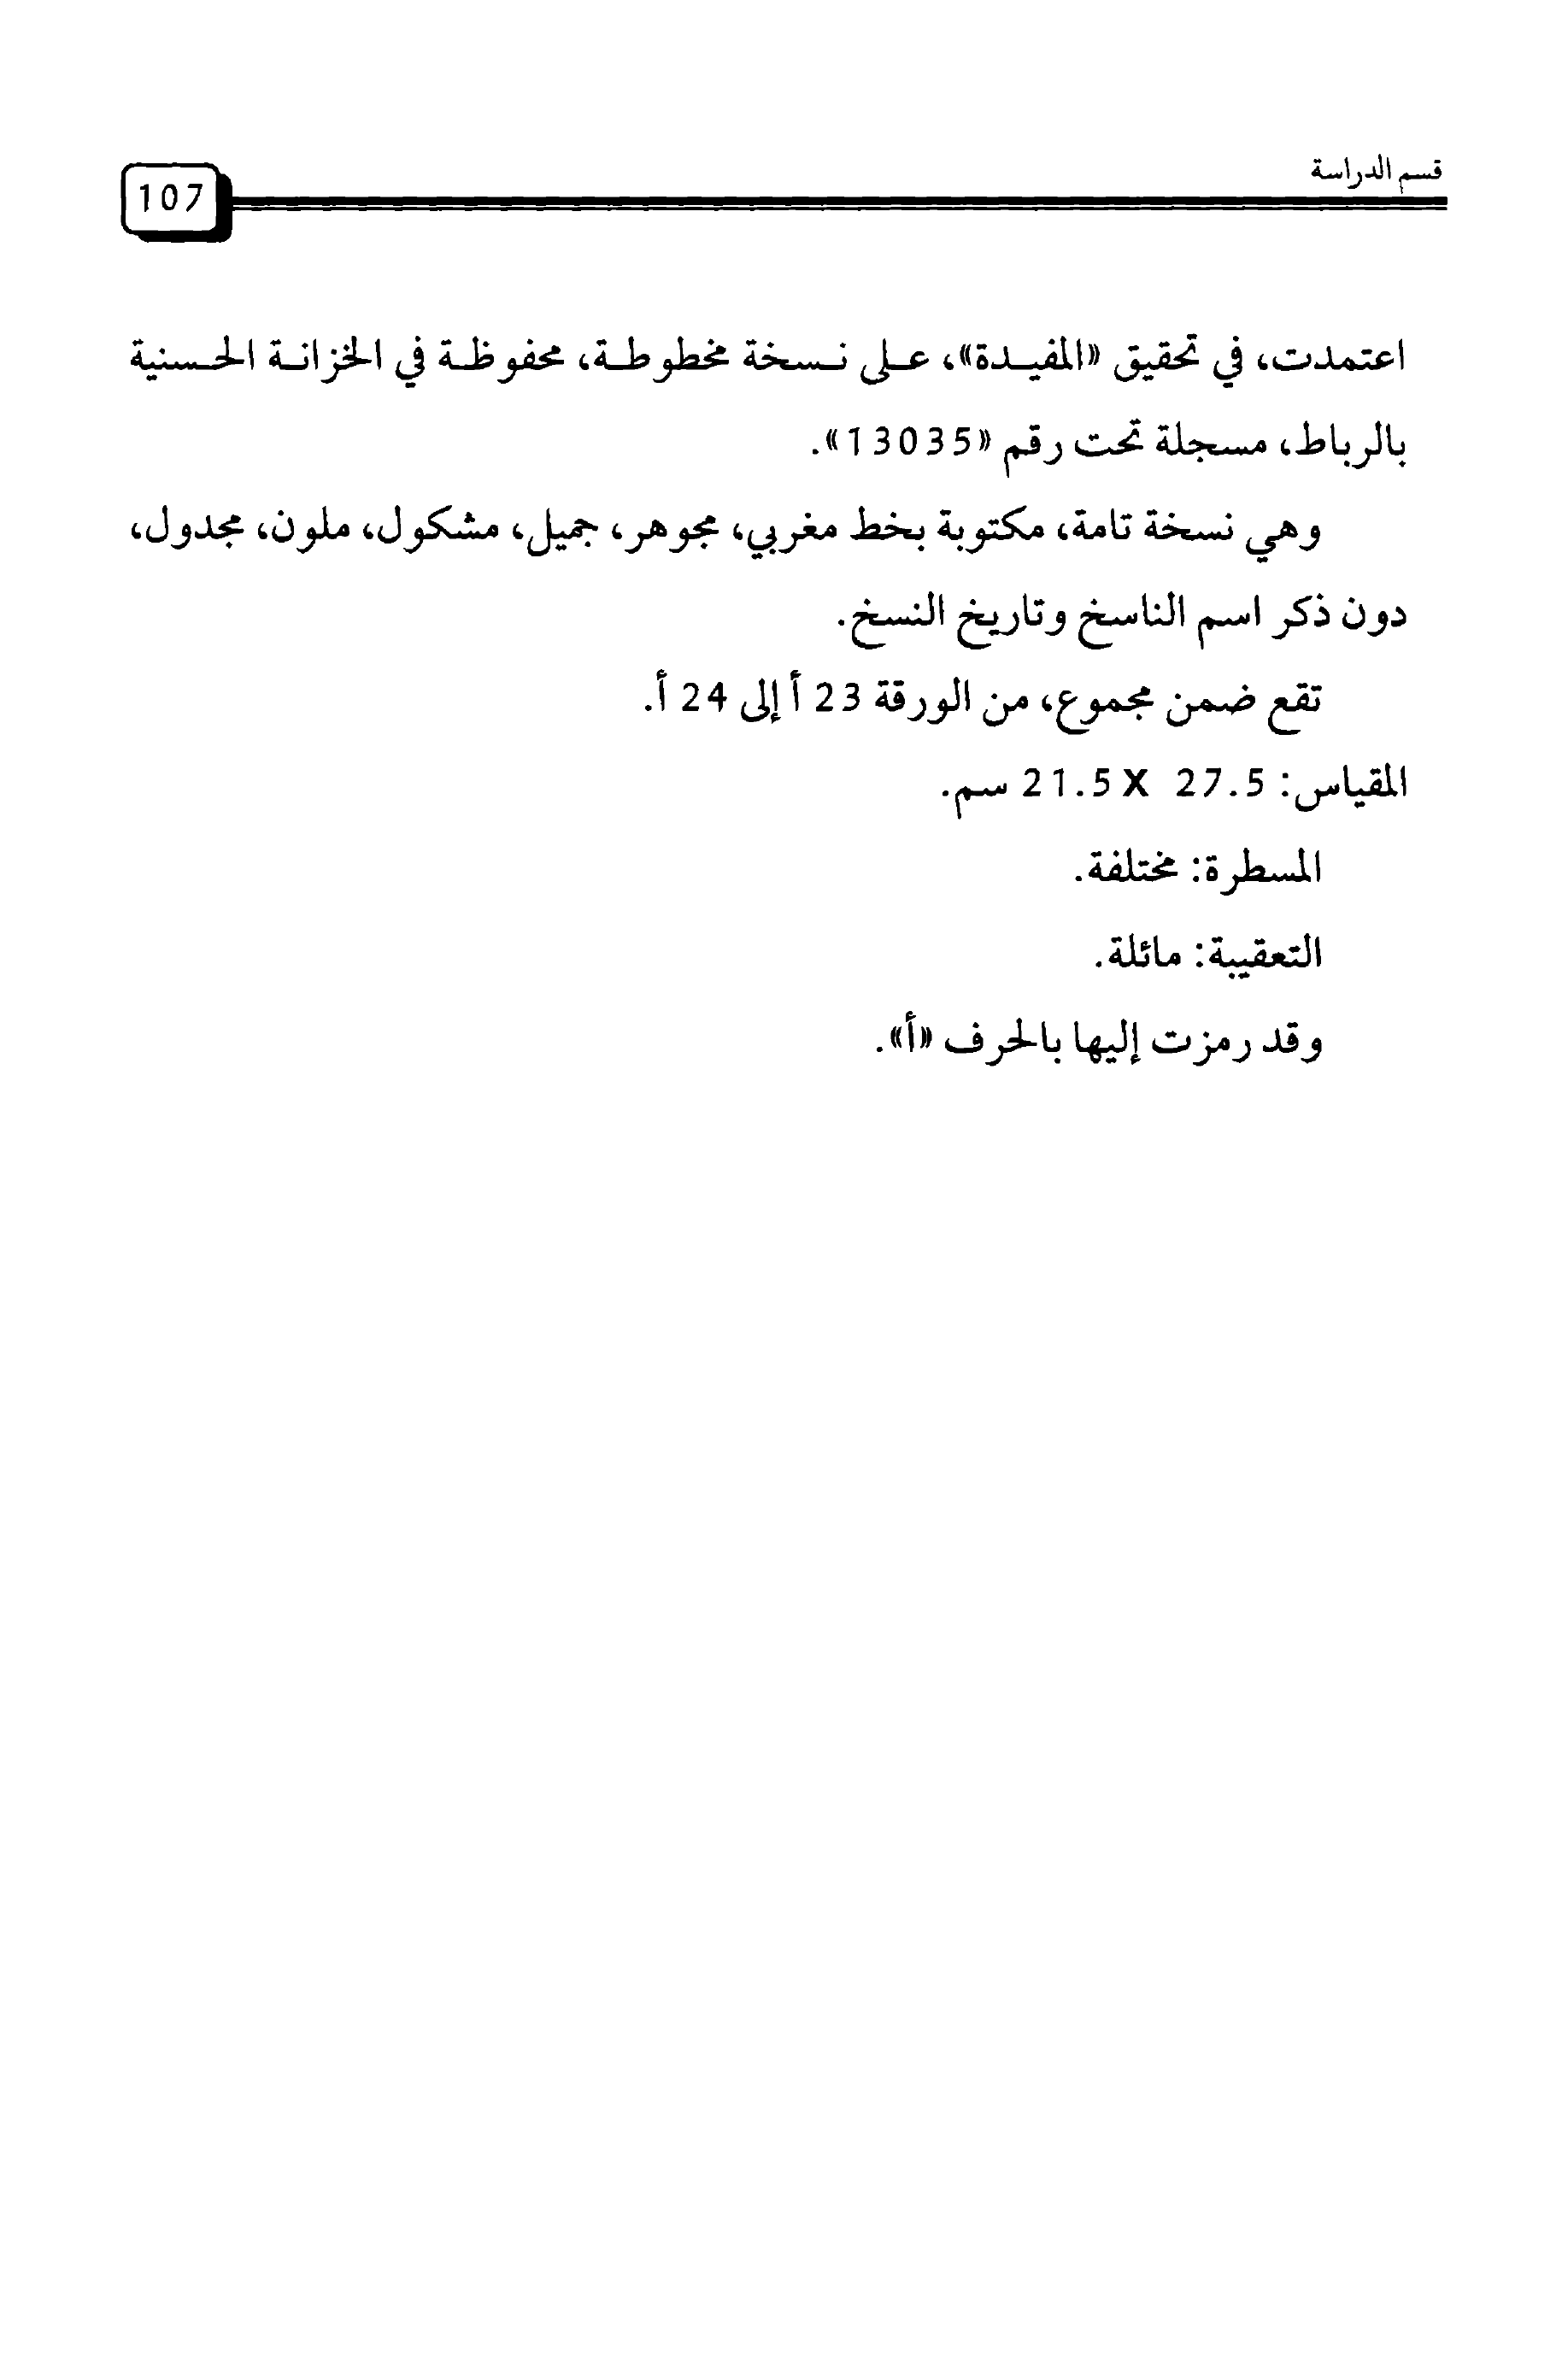 قسم الدراسة
107
اعتمدت، في تحقيق «المفيدة»، على نسخة مخطوطة، محفوظة في الخزانة الحسنية
بالرباط، مسجلة تحت رقم «13035».
وهي نسخة تامة، مكتوبة بخط مغربي، مجوهر، جميل، مشكول، ملون، مجدول،
دون ذكر اسم الناسخ وتاريخ النسخ.
تقع ضمن مجموع، من الورقة 23 أ إلى 24 أ.
المقياس: 27.5 X 21.5 سم.
المسطرة: مختلفة.
التعقيبة: مائلة.
وقد رمزت إليها بالحرف «أ».